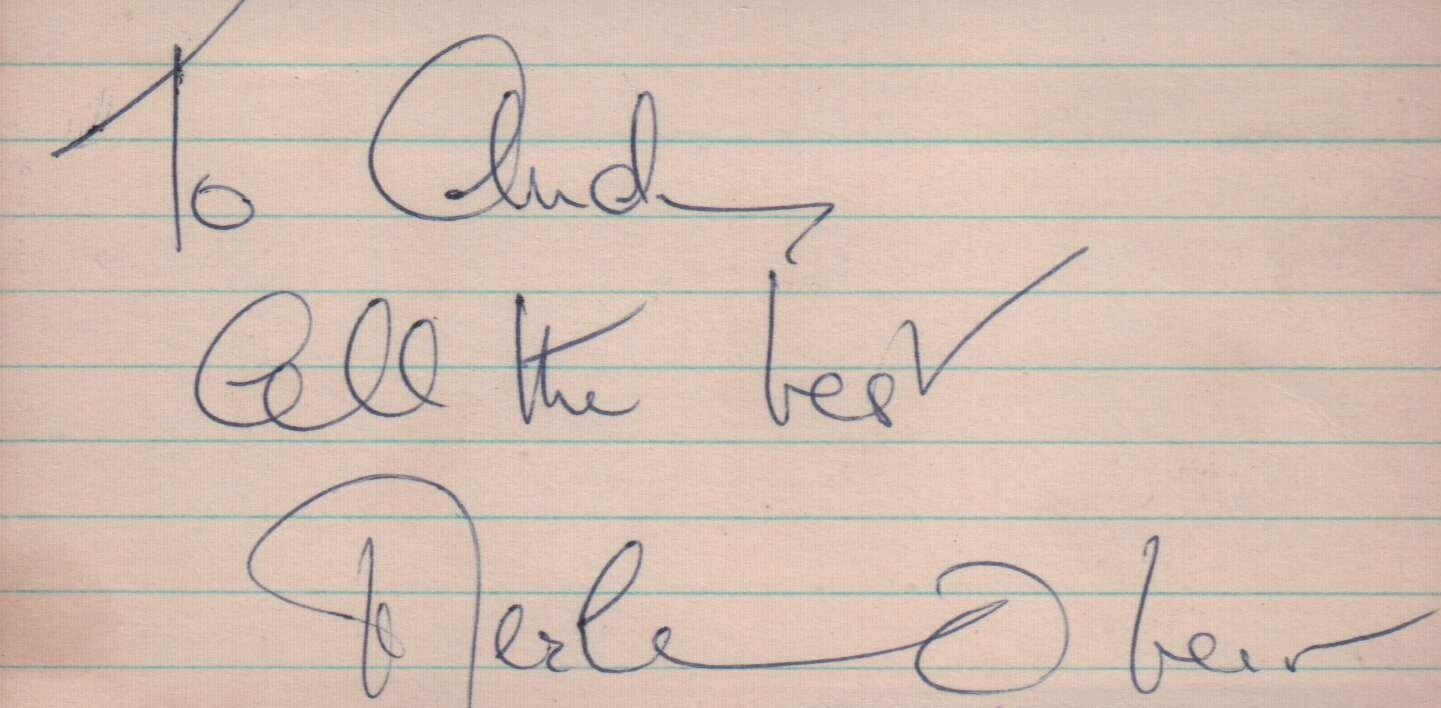 To Andy
All the best
Merle Oberon